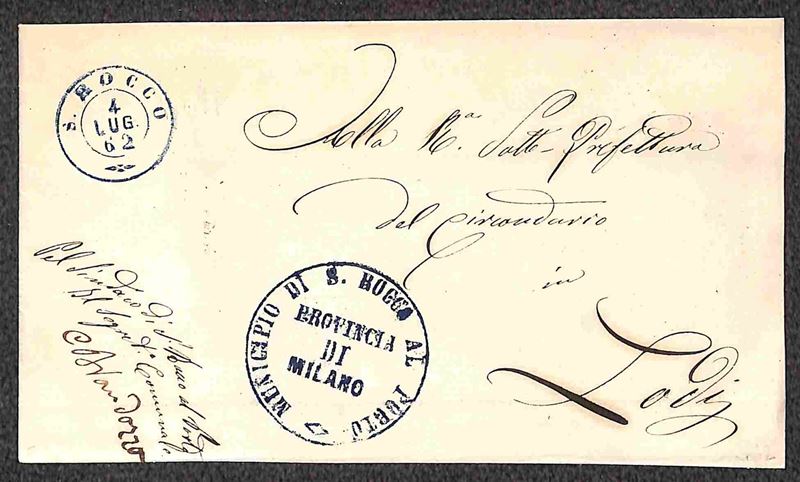 S. ROCCO
4
LUG.
62
Alla R.ª Sotto-Prefettura
del Circondario
in
Lodi
MUNICIPIO DI S. ROCCO AL PORTO
PROVINCIA
DI
MILANO
Pel Sindaco di S. Rocco al Porto
Il Segr.º Comunale